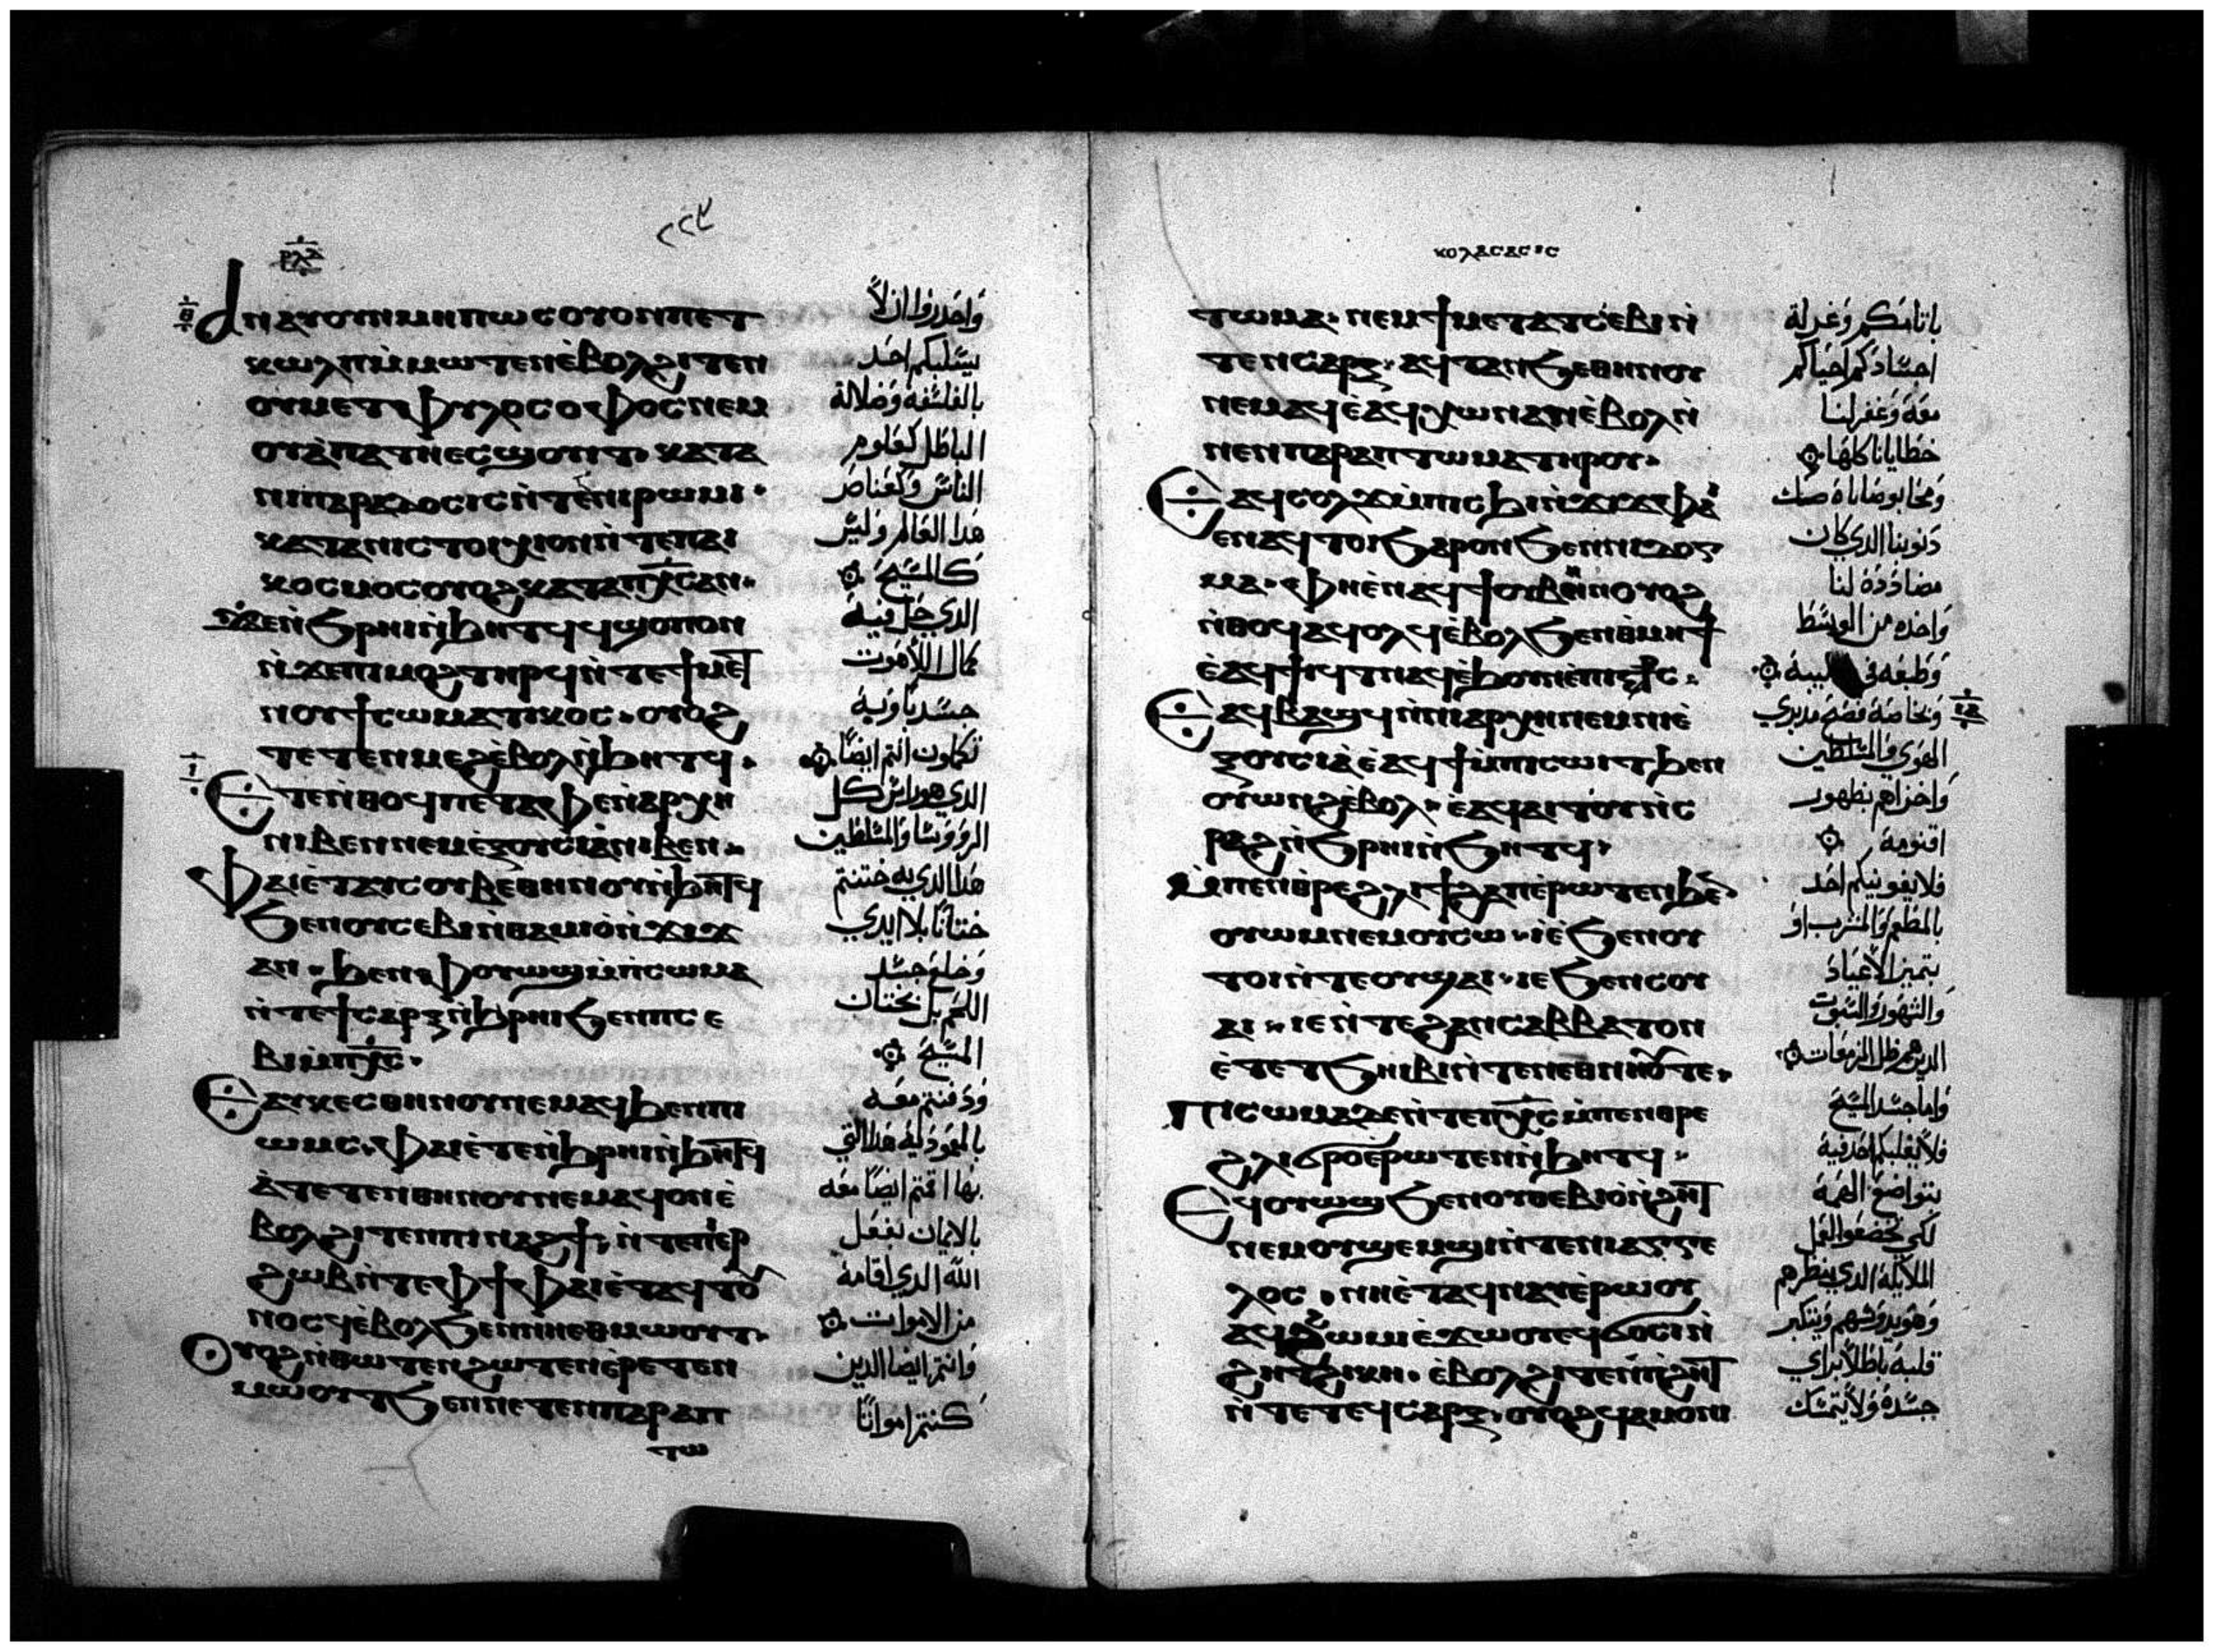 ⲣⲗⲇ
٢٢٤
ⲁⲛⲁⲩ ⲟⲩⲛ ⲙⲏⲡⲱⲥ ⲟⲩⲟⲛ ⲡⲉⲧ
ⲕⲱⲗⲡ ⲙ̀ⲙⲱⲧⲉⲛ ⲉ̀ⲃⲟⲗ ϩⲓⲧⲉⲛ
ⲟⲩⲙⲉⲧⲫⲩⲗⲟⲥⲟⲫⲟⲥ ⲛⲉⲙ
ⲟⲩⲁ̀ⲡⲁⲧⲏ ⲉⲥϣⲟⲩⲓⲧ. ⲕⲁⲧⲁ
ⲛⲓⲡⲁⲣⲁⲇⲟⲥⲓⲥ ⲛ̀ⲧⲉ ⲛⲓⲣⲱⲙⲓ.
ⲕⲁⲧⲁ ⲛⲓⲥⲧⲟⲓⲭⲓⲟⲛ ⲛ̀ⲧⲉ ⲡⲁⲓ
ⲕⲟⲥⲙⲟⲥ ⲟⲩⲟϩ ⲕⲁⲧⲁ ⲡⲭ̅ⲥ̅ ⲁⲛ.
ϫⲉ ⲛ̀ϩⲣⲏⲓ ⲛ̀ϧⲏⲧϥ ϥϣⲟⲡ ⲟⲛ
ⲛ̀ϫⲉ ⲡⲓⲙⲟϩ ⲧⲏⲣϥ ⲛ̀ⲧⲉ ϯⲙⲉⲧ
ⲛⲟⲩϯ ⲥⲱⲙⲁⲧⲓⲕⲟⲥ. ⲟⲩⲟϩ
ⲧⲉⲧⲉⲛⲙⲉϩ ⲉ̀ⲃⲟⲗ ⲛ̀ϧⲏⲧϥ.
ⲉⲧⲉ ⲛ̀ⲑⲟϥ ⲡⲉ ⲧⲁⲫⲉ ⲛ̀ⲁⲣⲭⲏ
ⲛⲓⲃⲉⲛ ⲛⲉⲙ ⲉ̀ⲝⲟⲩⲥⲓⲁ̀ ⲛⲓⲃⲉⲛ.
ⲫⲁⲓ ⲉ̀ⲧⲁⲩⲥⲟⲩⲃⲉ ⲑⲏⲛⲟⲩ ⲛ̀ϧⲏⲧϥ
ϩⲉⲛ ⲟⲩⲥⲉⲃⲓ ⲛ̀ⲑⲁⲙⲓⲟ̀ ⲛ̀ϫⲓϫ
ⲁⲛ. ϧⲉⲛ ⲫⲟⲩⲱϣ ⲙ̀ⲡⲓⲥⲱⲙⲁ
ⲛ̀ⲧⲉ ϯⲥⲁⲣⲝ ⲛ̀ϧⲣⲏⲓ ϩⲉⲛ ⲡⲥⲉ
ⲃⲓ ⲙ̀ⲡⲭ̅ⲥ̅.
ⲉⲁⲩⲕⲉⲥ ⲑⲏⲛⲟⲩ ⲛⲉⲙⲁϥ ϧⲉⲛ ⲡⲓ
ⲱⲙⲥ. ⲫⲁⲓ ⲉ̀ⲧⲉ ⲛ̀ϧⲣⲏⲓ ⲛ̀ϧⲏⲧϥ
ⲁ̀ⲧⲉⲧⲉⲛⲑⲏⲛⲟⲩ ⲛⲉⲙⲁϥ ⲟⲛ ⲉ̀
ⲃⲟⲗ ϩⲓⲧⲉⲛ ⲡⲓⲛⲁϩϯ. ⲛ̀ⲧⲉ ⲡⲉⲣ
ϩⲱⲃ ⲛ̀ⲧⲉ ⲫϯ ⲫⲁⲓ ⲉ̀ⲧⲁϥⲧⲟⲩ
ⲛⲟⲥϥ ⲉ̀ⲃⲟⲗ ϩⲉⲛ ⲛⲏⲉⲑⲙⲱⲟⲩⲧ.
ⲟⲩⲟϩ ⲛⲑⲱⲧⲉⲛ ϩⲱⲧⲉⲛ ⲉ̀ⲣⲉⲧⲉⲛ
ⲙⲱⲟⲩⲧ ϩⲉⲛ ⲛⲉⲧⲉⲛⲡⲁⲣⲁⲡ
ⲧⲱ
واحدروا ان لا
يسلبكم احد
بالفلسفة وضلالة
الباطل كعلوم
الناس وكعناصر
هذا العالم وليس
كالمسيح
الدي حل فيه
كمال اللاهوت
جسدياوبه
تكملون انتم ايضا
الدي هو راس كل
الرووسا والمسلطين
هذا الدي به ختنتم
ختانا بلا ايدي
وخلع جسد
اللحم بل بختان
المسيح
ودفنتم معه
بالمعمودية هذا التي
بها اقمتم ايضا معه
بالايمان بفعل
الله الدي اقامه
من الاموات
وانتم ايضا الدين
كنتم امواتا
ⲕⲟⲗⲁⲥⲁⲉⲓⲥ
ⲧⲱⲙⲁ. ⲛⲉⲙ ϯⲙⲉⲧⲁⲧⲥⲉⲃⲓ ⲛ̀
ⲧⲉⲛⲥⲁⲣⲝ. ⲁϥⲧⲁⲛϩⲉ ⲑⲏⲛⲟⲩ
ⲛⲉⲙⲁϥ ⲉ̀ⲁϥⲭⲱ ⲛⲁⲛ ⲉ̀ⲃⲟⲗ ⲛ̀
ⲛⲉⲛⲡⲁⲣⲁⲡⲧⲱⲙⲁ ⲧⲏⲣⲟⲩ.
ⲉⲁϥⲥⲟⲗϫ ⲙ̀ⲡⲓⲥϧⲓ ⲛ̀ϫⲓϫ ⲫⲁ
ⲉⲛⲁϥⲧⲟⲓ ϩⲁⲣⲟⲛ ϩⲉⲛ ⲛⲓⲇⲟⲅ
ⲙⲁ. ⲫⲏ ⲉ̀ⲛⲁϥϯ ⲟⲩⲃⲏⲛ ⲟⲩⲟϩ
ⲛ̀ⲑⲟϥ ⲁϥⲟⲗϥ ⲉ̀ⲃⲟⲗ ϩⲉⲛ ⲑⲙⲏϯ
ⲉ̀ⲁϥϯⲓϥⲧ ⲛⲁϥ ⲉ̀ϧⲟⲩⲛ ⲉ̀ⲡⲓⲥⲧⲣⲥ.
ⲉⲁϥⲃⲁϣϥ ⲛ̀ⲛⲓⲁⲣⲭⲏ ⲛⲉⲙ ⲛⲓⲉ̀
ⲝⲟⲩⲥⲓⲁ̀ ⲉ̀ⲁϥϯ ⲙ̀ⲡⲓⲥⲱⲓⲧ ϧⲉⲛ
ⲟⲩⲱⲛϩ ⲉ̀ⲃⲟⲗ. ⲉ̀ⲁϥⲁⲓⲧⲟⲩ ⲛ̀ⲥ
ⲣⲁϩ ⲛ̀ϩⲣⲏⲓ ⲛ̀ϩⲏⲧϥ.
ⲙ̀ⲡⲉⲛⲑⲣⲉ ϩⲗⲓ ϯϩⲁⲡ ⲉ̀ⲣⲱⲧⲉⲛ ϧⲉⲛ
ⲟⲩⲱⲙ ⲛⲉⲙ ⲟⲩⲥⲱ. ⲓⲉ ϩⲉⲛ ⲟⲩ
ⲧⲟⲓ ⲛ̀ⲧⲉ ⲟⲩϣⲁⲓ. ⲓⲉ ϩⲉⲛ ⲥⲟⲩ
ⲁⲓ. ⲓⲉ ⲛ̀ⲧⲉ ϩⲁⲛⲥⲁⲃⲃⲁⲧⲟⲛ
ⲉ̀ⲧⲉ ⲧϩⲏⲓⲃⲓ ⲛ̀ⲧⲉ ⲛⲉⲑⲛⲏⲟⲩ ⲧⲉ.
ⲡⲓⲥⲱⲙⲁ ⲇⲉ ⲛ̀ⲧⲉ ⲡⲭ̅ⲥ̅ ⲙ̀ⲡⲉⲛⲑⲣⲉ
ϩⲗⲓ ϭⲣⲟ ⲉ̀ⲣⲱⲧⲉⲛ ⲛ̀ϧⲏⲧϥ.
ⲉϥⲟⲩⲱϣ ϩⲉⲛ ⲟⲩⲑⲉⲃⲓⲟ̀ ⲛ̀ϩⲏⲧ
ⲛⲉⲙ ⲟⲩϣⲉⲙϣⲓ ⲛ̀ⲧⲉ ⲛⲓⲁⲅⲅⲉ
ⲗⲟⲥ. ⲛⲏ ⲉ̀ⲧⲁϥⲛⲁⲩ ⲉ̀ⲣⲱⲟⲩ
ⲁϥϩⲱⲙⲓ ⲉ̀ϫⲱⲟⲩ ⲉϥϭⲟⲥⲓ ⲛ̀
ϩⲏⲧ ϩⲓⲕⲏ. ⲉ̀ⲃⲟⲗ ϩⲓⲧⲉⲛ ⲡϩⲏⲧ
ⲛ̀ⲧⲉ ⲧⲉϥⲥⲁⲣⲝ. ⲟⲩⲟϩ ϥⲁⲙⲟⲛⲓ
باتامكم وغرلة
اجسادكم احياكم
معه وغفر لنا
خطايانا كلها
ومحا بوصاياه صك
دنوبنا الدي كان
مضاددة لنا
واخده من الوسط
وطبعه في
الهوي والمسلطين
واخزاهم بظهور
اقنومه
فلا يفونيكم احد
بالمطعم والمشرب او
بتميز الاعياد
والشهور والسبوت
الدين هم ظل المزمعات
واما جسد المسيح
فلا يغلبكم احد فيه
بتواضع الهمة
لكي تخضعوا لفعل
الملايكة الدي ينظرهم
قلبه باطلا براي
جسده ولا يتمسك